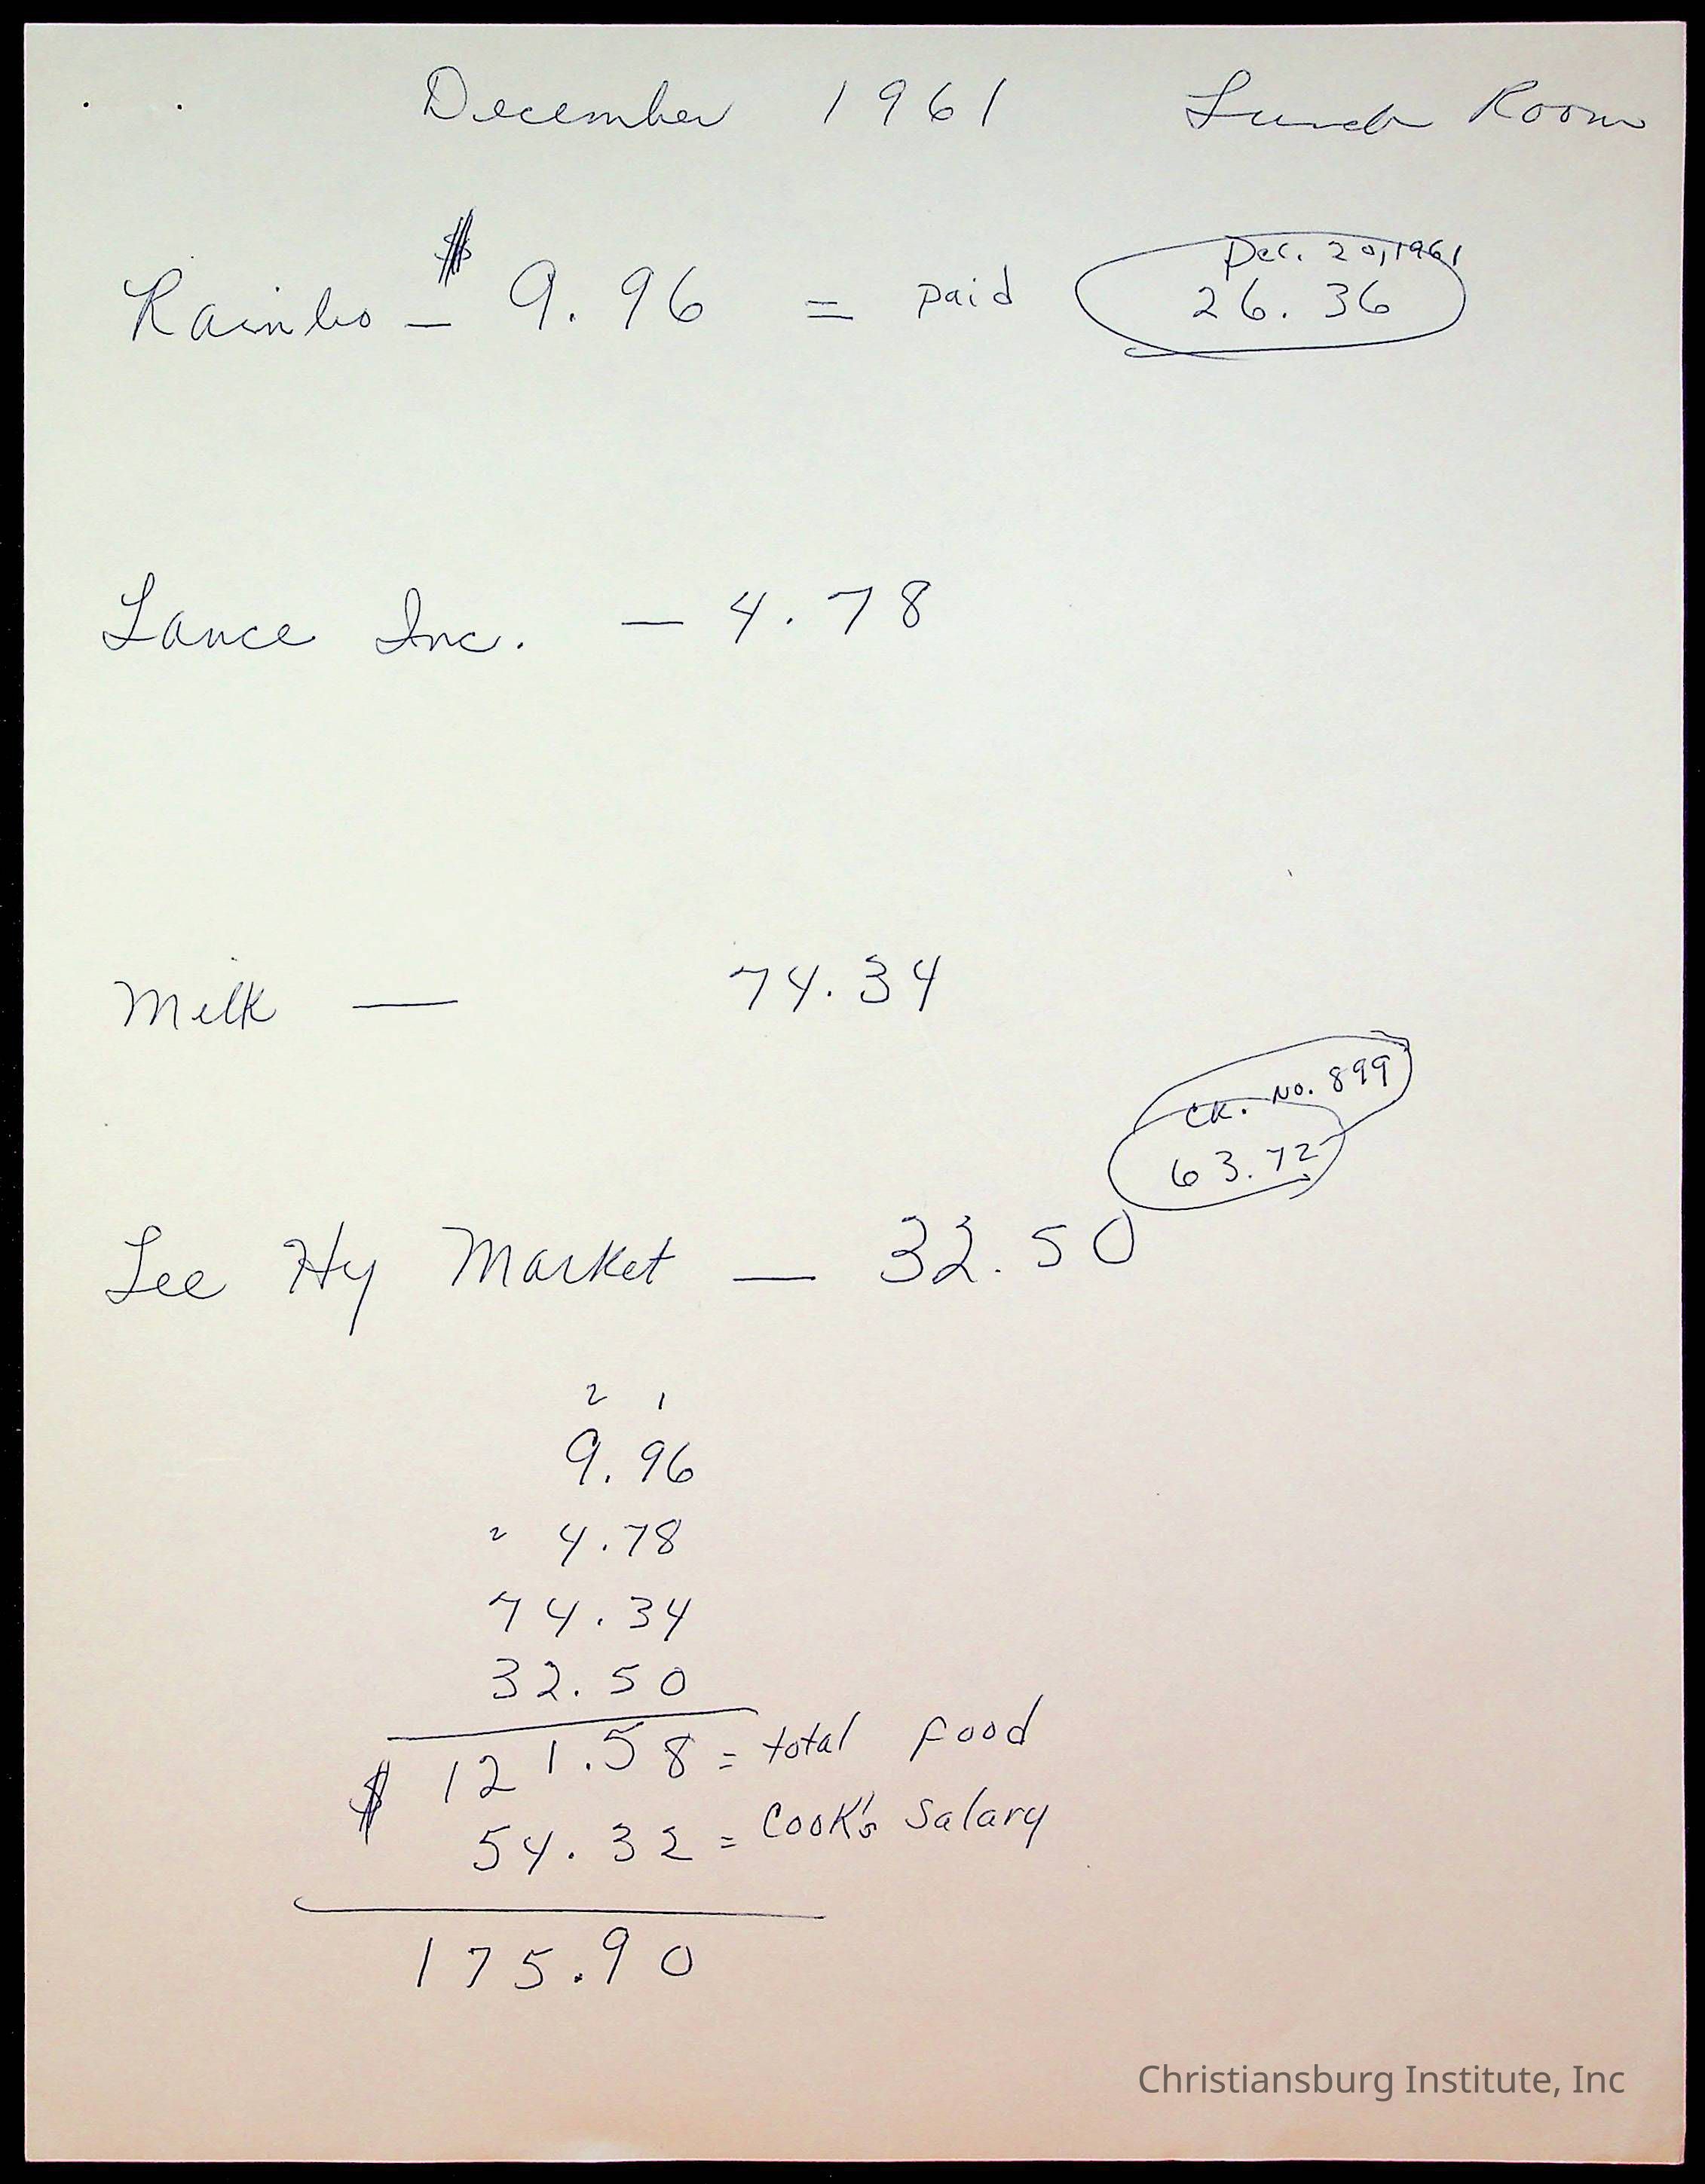 December 1961 Lunch Room
Dec. 20, 1961
Rainbo - $ 9.96 = paid 26.36
Lance Inc. - 4.78
Milk - 74.34
CK. No. 899
63.72
Lee Hy Market - 32.50
2 1
9.96
2 4.78
74.34
32.50
$ 121.58 = total food
54.32 = Cook's Salary
175.90
Christiansburg Institute, Inc